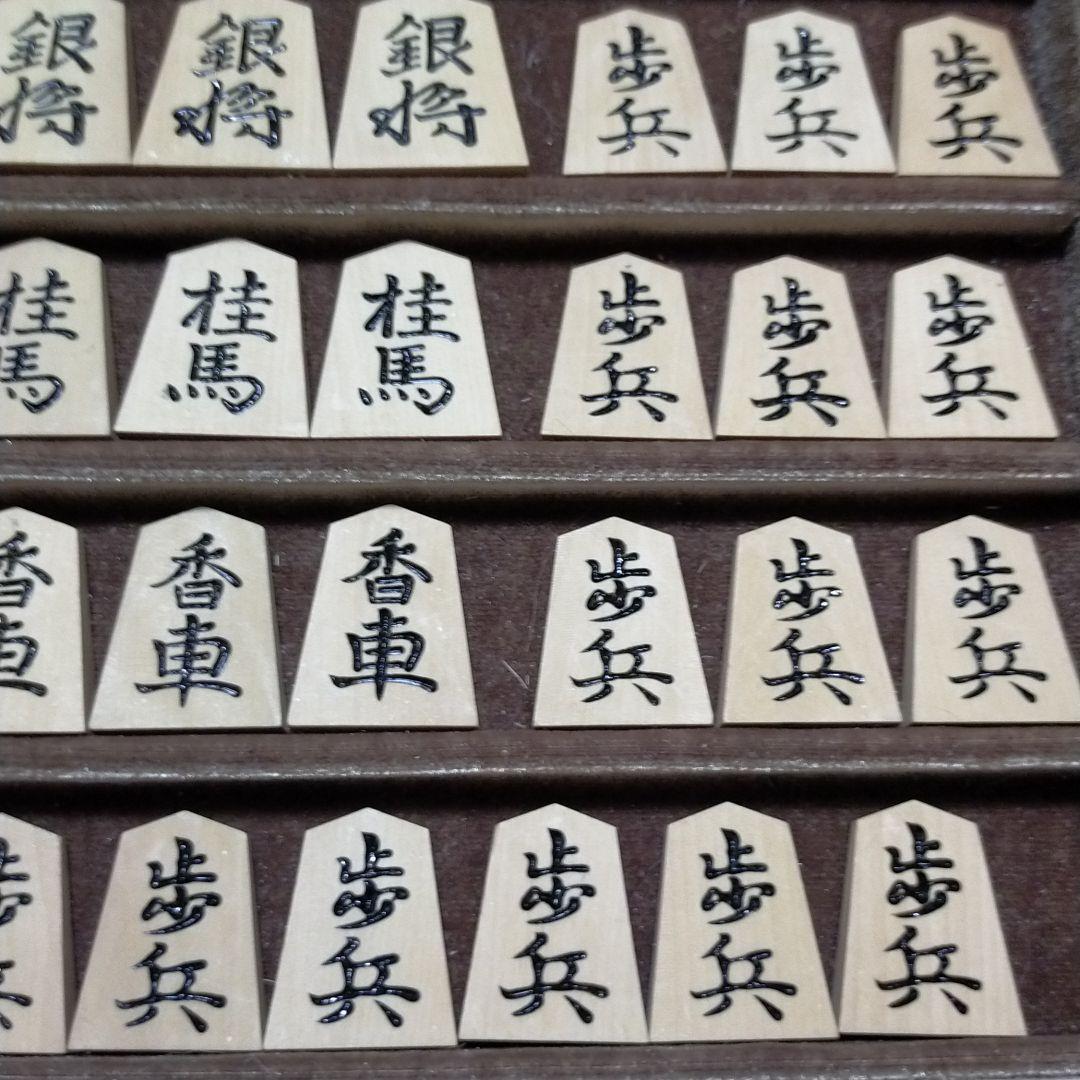 銀将 銀将 銀将 歩兵 歩兵 歩兵
桂馬 桂馬 桂馬 歩兵 歩兵 歩兵
香車 香車 香車 歩兵 歩兵 歩兵
歩兵 歩兵 歩兵 歩兵 歩兵 歩兵